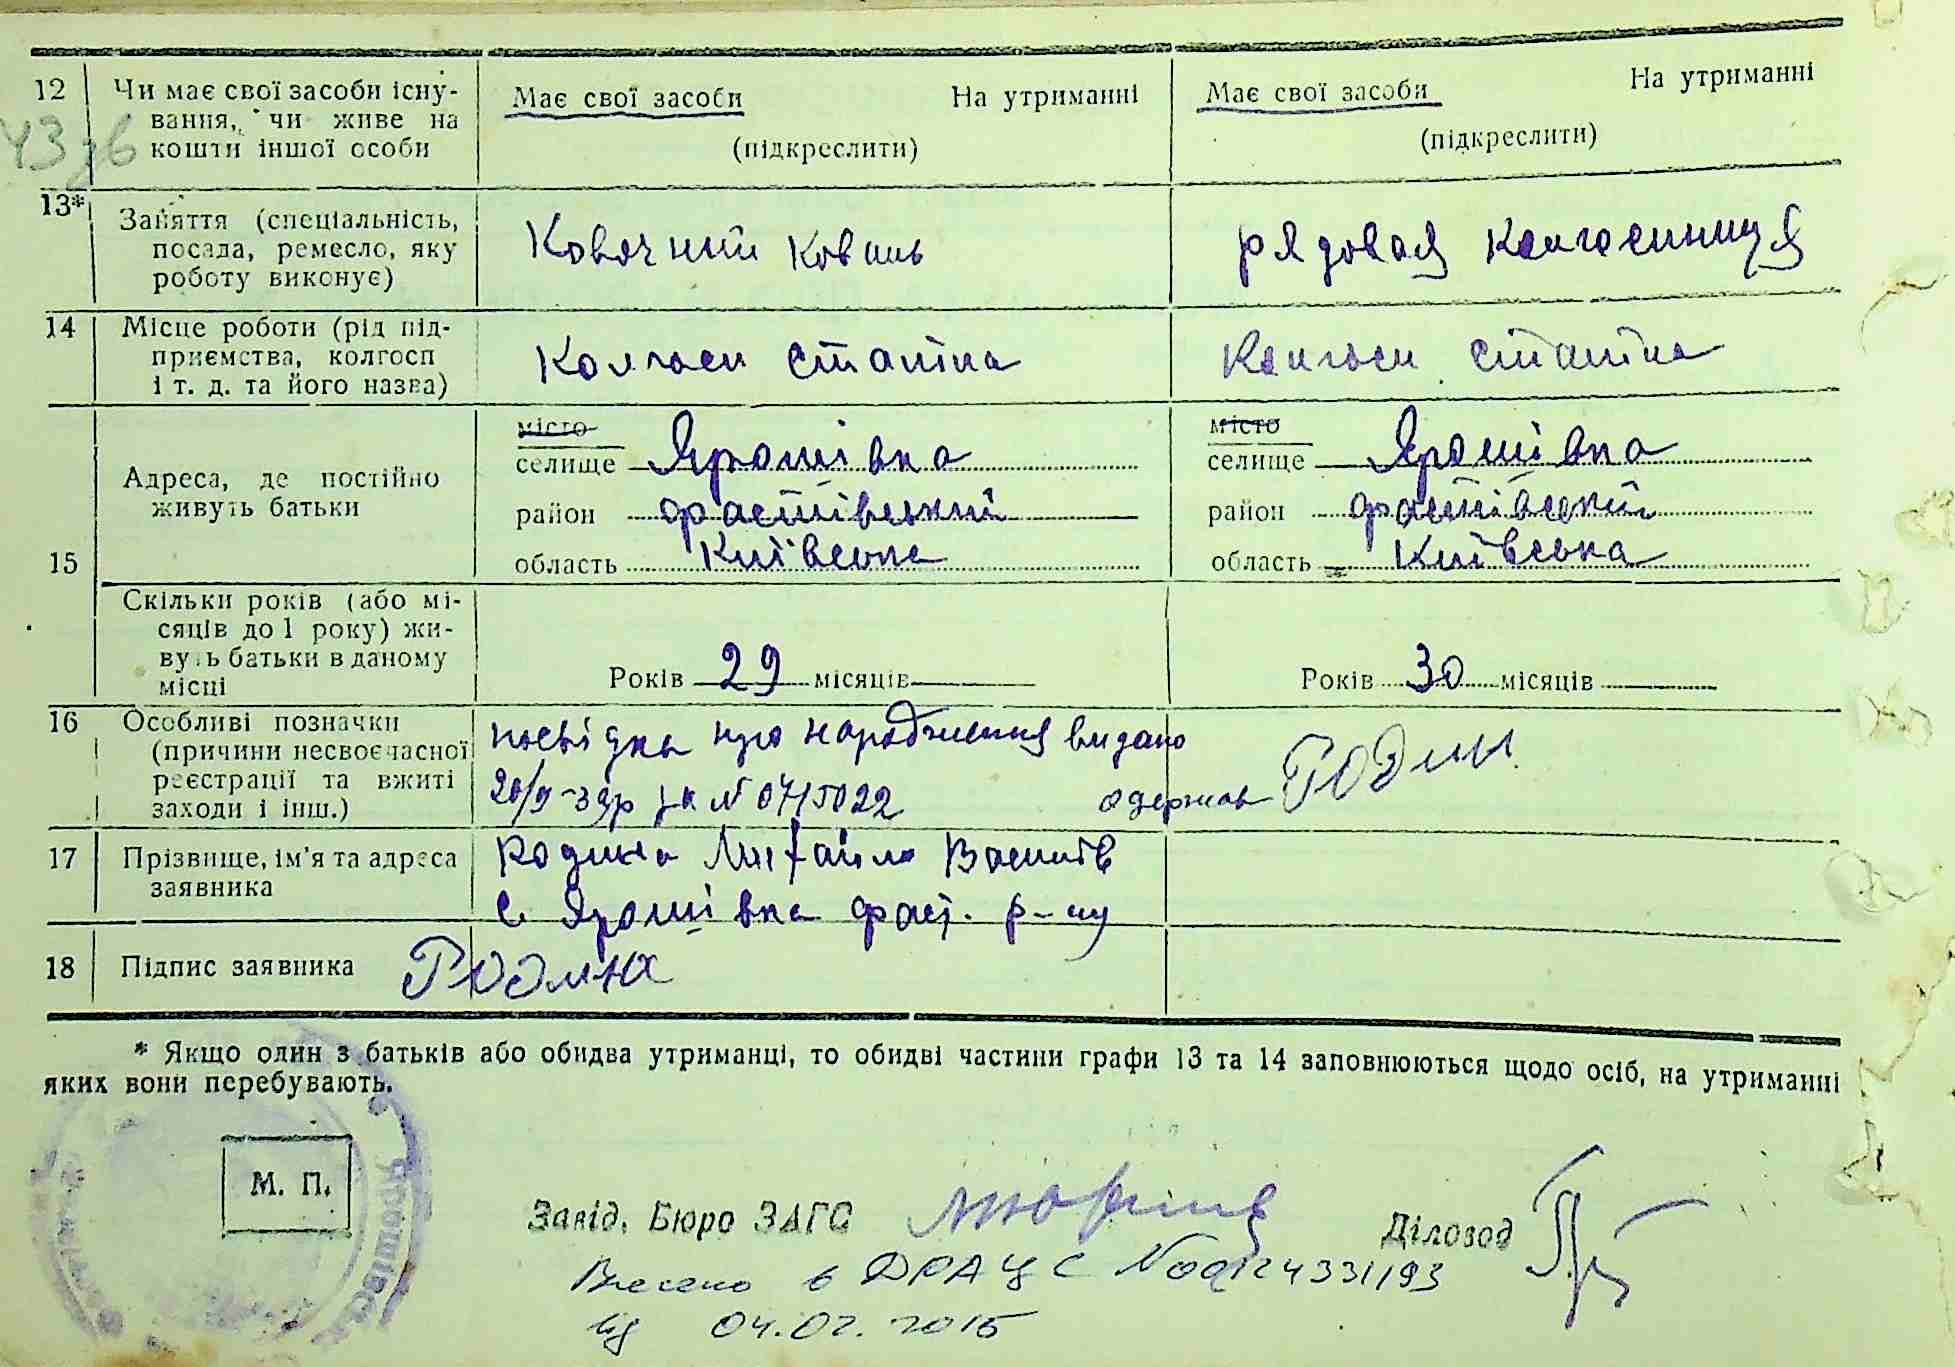 12 Чи має свої засоби існу-
вання, чи живе на
кошти іншої особи
Має свої засоби На утриманні
(підкреслити)
Має свої засоби На утриманні
(підкреслити)
13* Заняття (спеціальність,
посада, ремесло, яку
роботу виконує)
коваль
рядовая колгоспниця
14 Місце роботи (рід під-
приємства, колгосп
і т. д. та його назва)
Колгосп Сталіна
Колгосп Сталіна
15 Адреса, де постійно
живуть батьки
місто
селище Ярошівка
район Фастівський
область Київська
місто
селище Ярошівка
район Фастівський
область Київська
Скільки років (або мі-
сяців до 1 року) жи-
вуть батьки в даному
місці
Років 29 місяців
Років 30 місяців
16 Особливі позначки
(причини несвоєчасної
реєстрації та вжиті
заходи і інш.)
посвідка про народження видано
за № 0715022 одержав Родин
17 Прізвище, ім'я та адреса
заявника
Родина Михайло Василів
с Ярошівка Фаст. р-ну
18 Підпис заявника Родина
* Якщо один з батьків або обидва утриманці, то обидві частини графи 13 та 14 заповнюються щодо осіб, на утриманні
яких вони перебувають.
М. П.
Завід. Бюро ЗАГС Діловод
Внесено в ДРАЦС
від 04.02.2015